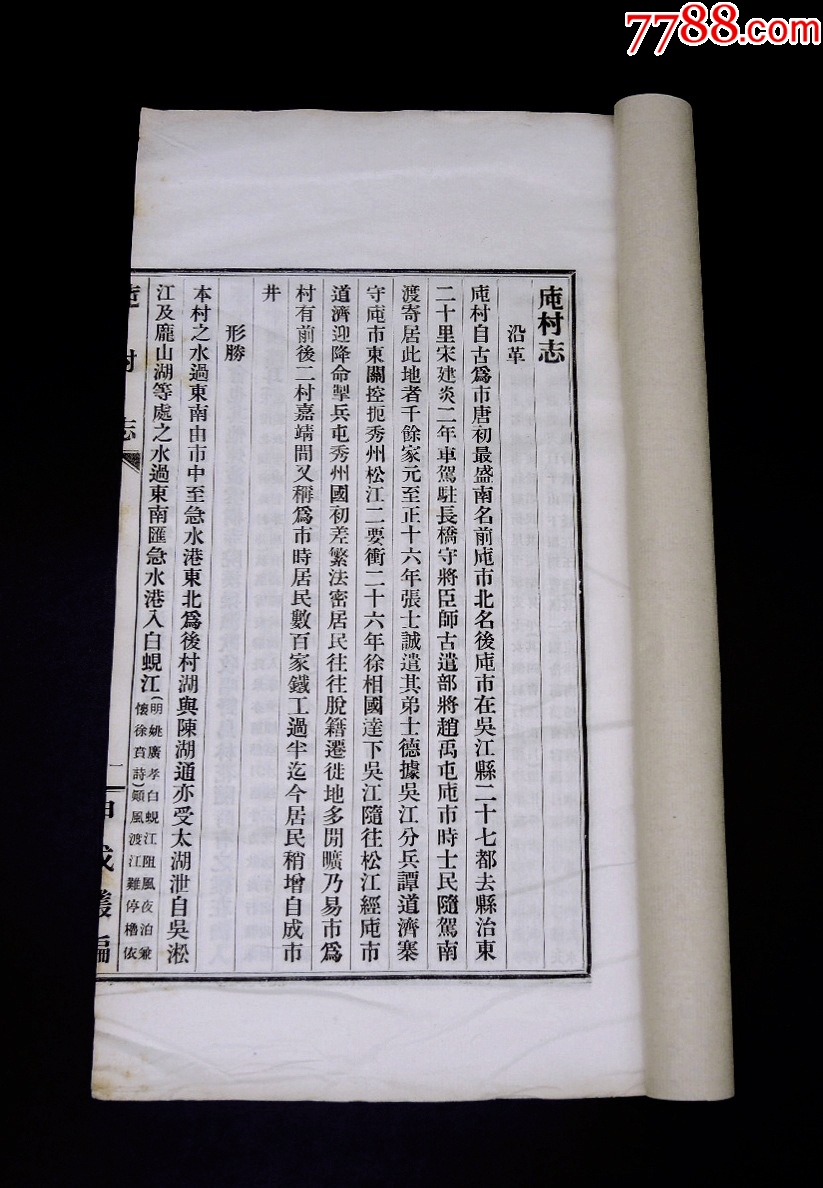 7788.com
庉村志
沿革
庉村自古爲市唐初最盛南名前庉市北名後庉市在吳江縣二十七都去縣治東
二十里宋建炎二年車駕駐長橋守將臣師古遣部將趙禹屯庉市時士民隨駕南
渡寄居此地者千餘家元至正十六年張士誠遣其弟士德據吳江分兵譚道濟寨
守庉市東關控扼秀州松江二要衝二十六年徐相國達下吳江隨往松江經庉市
道濟迎降命掣兵屯秀州國初差繁法密居民往往脫籍遷徙地多閒曠乃易市爲
村有前後二村嘉靖間又稱爲市時居民數百家鐵工過半迄今居民稍增自成市
井
形勝
本村之水過東南由市中至急水港東北爲後村湖與陳湖通亦受太湖泄自吳淞
江及龐山湖等處之水過東南匯急水港入白蜆江(明姚廣孝白蜆江阻風夜泊兼
懷徐賁詩)頲風渡江難停櫓依
庉村志
一
甲戌叢編